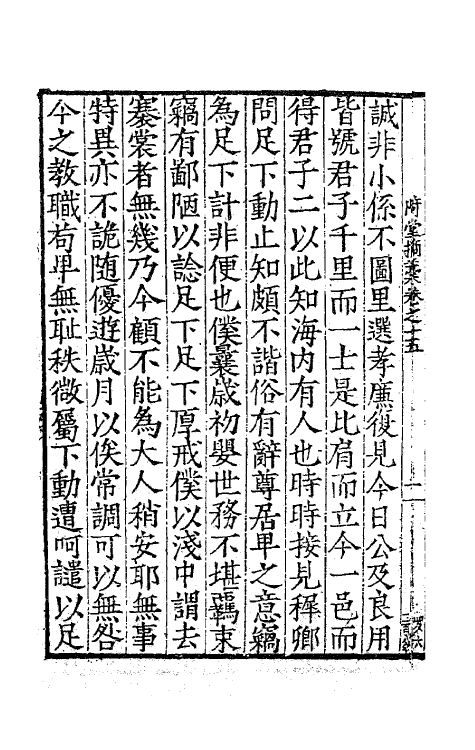 誠非小係不圖里選孝廉復見今日公及良用
皆號君子千里而一士是比肩而立今一邑而
得君子二以此知海内有人也時時接見稺卿
問足下動止知頗不諧俗有辭尊居𤰞之意竊
為足下計非便也僕曩歲初嬰世務不堪羈束
竊有鄙陋以諗足下足下厚戒僕以淺中謂去
褰裳者無幾乃今顧不能為大人稍安耶無事
特異亦不詭随優遊歲月以俟常調可以無咎
今之教職茍𤰞無耻秩㣲屬下動遭呵譴以足
卷之十五
一